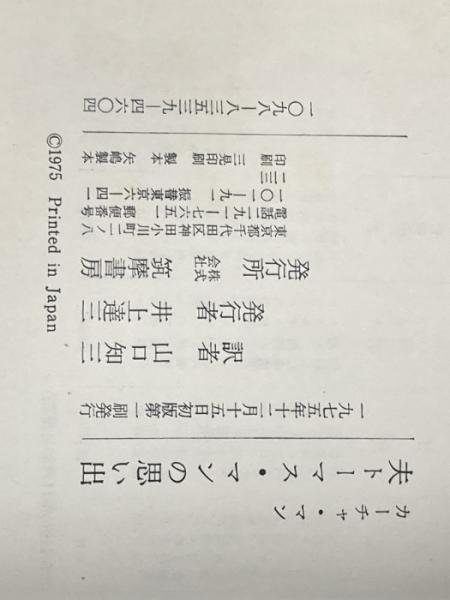 カーチャ・マン
夫トーマス・マンの思い出
一九七五年十二月十五日初版第一刷発行
訳者 山口知三
発行者 井上達三
発行所 株式会社 筑摩書房
東京都千代田区神田小川町二ノ八
電話二九一―七六五一 郵便番号
一〇一―九一 振替東京六―四一
二三
印刷 三晃印刷 製本 矢嶋製本
一〇九八―八三五三九―四六〇四
©1975 Printed in Japan